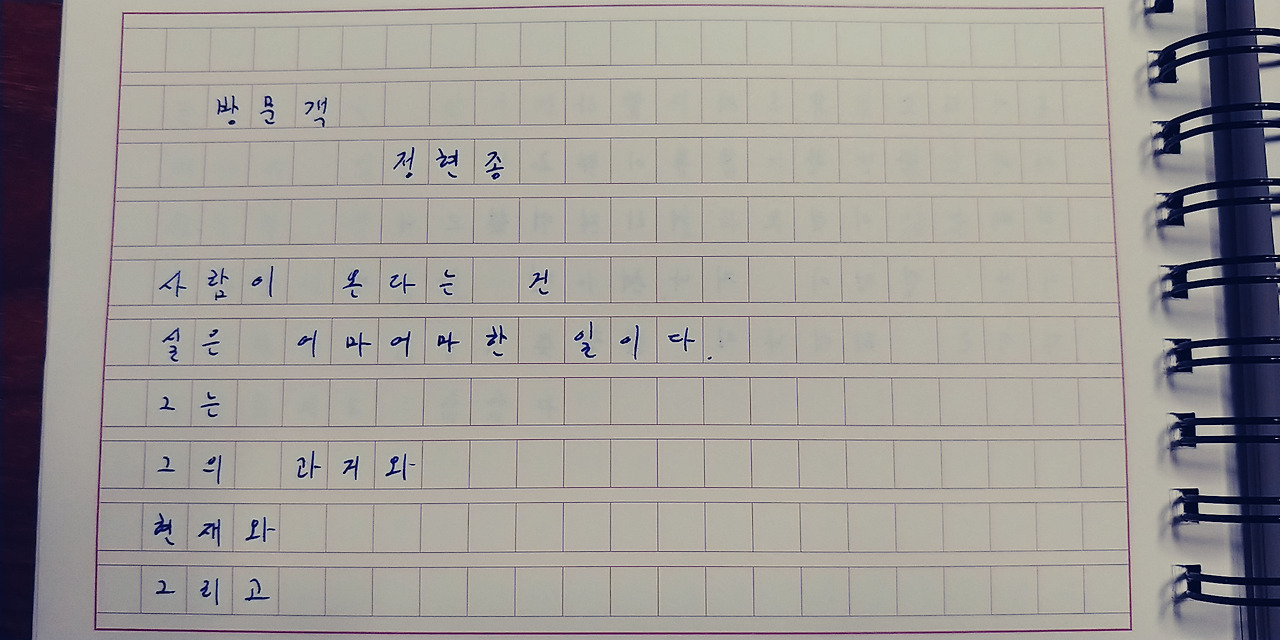 방문객
정현종
사람이 온다는 건
실은 어마어마한 일이다.
그는
그의 과거와
현재와
그리고